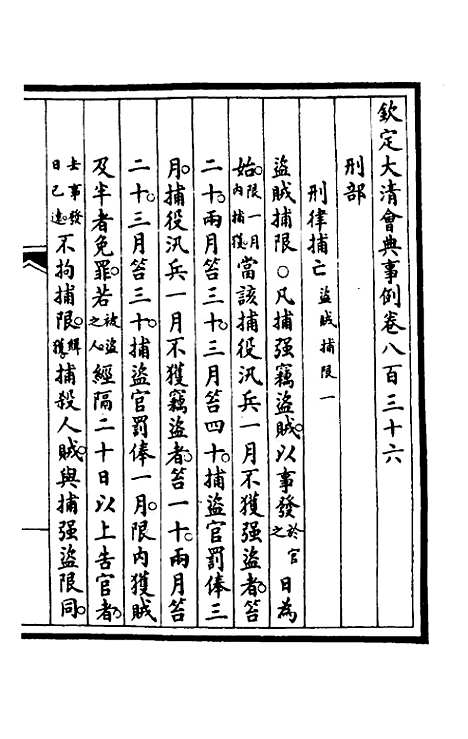 欽定大清會典事例卷八百三十六
刑部
刑律捕亡盜賊捕限一
盜賊捕限○凡捕强竊盜賊以事發於官之日爲
始限一月內捕獲當該捕役汛兵一月不獲强盜者笞
二十兩月笞三十三月笞四十捕盜官罰俸三
月捕役汛兵一月不獲竊盜者笞一十兩月笞
二十三月笞三十捕盜官罰俸一月限內獲賊
及半者免罪若被盜之人經隔二十日以上告官者
去事發日已遠不拘捕限緝獲捕殺人賊與捕强盜限同